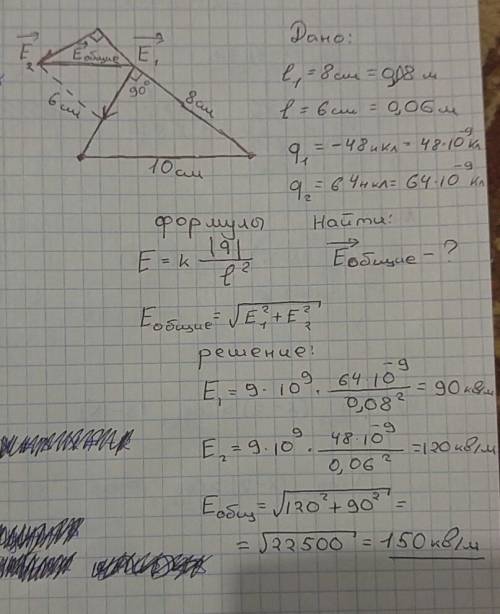 E₂ →
E общие →
E₁ →
90°
6 см
8 см
10 см
Дано:
l₁ = 8 см = 0,08 м
l = 6 см = 0,06 м
q₁ = -48 нкл = 48·10⁻⁹ Кл
q₂ = 64 нкл = 64·10⁻⁹ Кл
Найти:
E общие → - ?
формулы
E = k |q| / l²
E общие = √(E₁² + E₂²)
решение:
E₁ = 9·10⁹ · 64·10⁻⁹ / 0,08² = 90 кв/м
E₂ = 9·10⁹ · 48·10⁻⁹ / 0,06² = 120 кв/м
E общ = √(120² + 90²) =
= √22500 = 150 кв/м